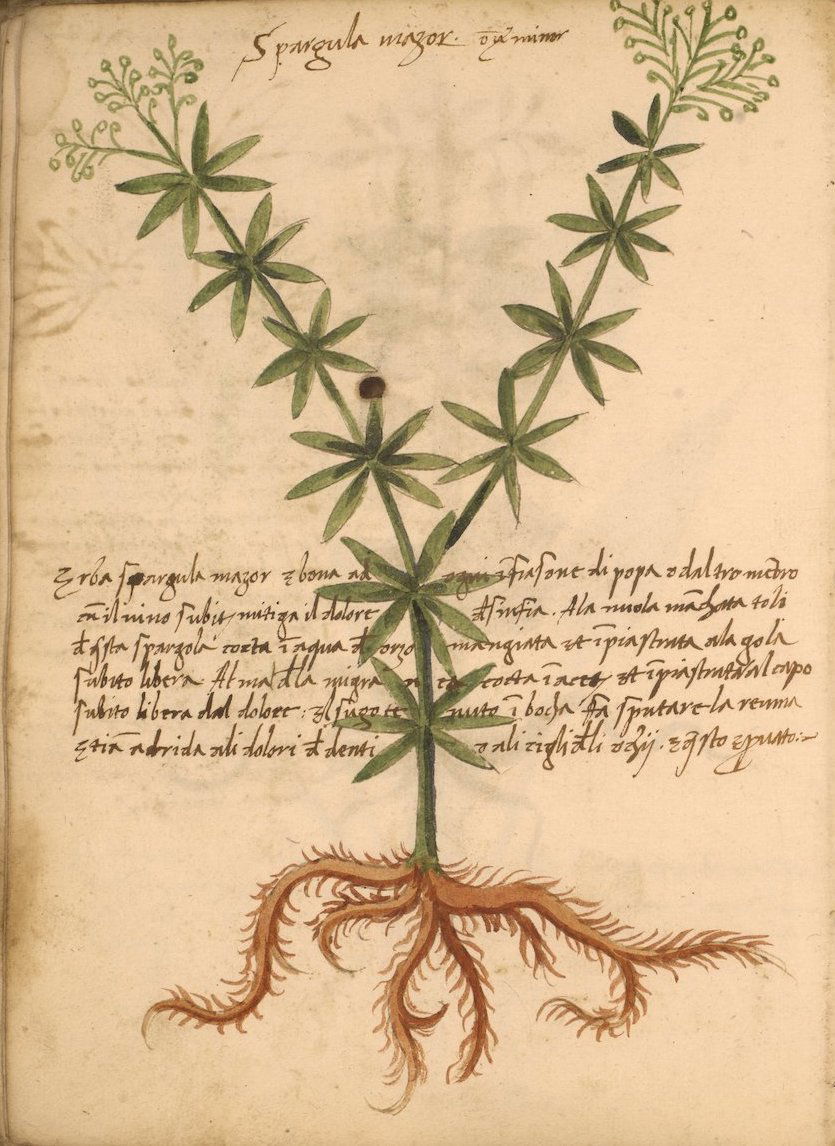 Spargula mazor. minor
Erba spargula mazor e bona ad ogni ifiasone di popa o dal tro mebro
cu il vino subito mitiga il dolore infia. A la nuola toli
d qsta spargola cocta i aqua d orzo mangiata et ipiastrata ala gola
subito libera. Al mal dla migra cocta i aceto et ipiastrata al capo
subito libera dal dolore: el sugo tenuto i bocha fa sputare la reuma
Etia ali dolori d denti o ali cigli dli ochij. e qsto e puato:~